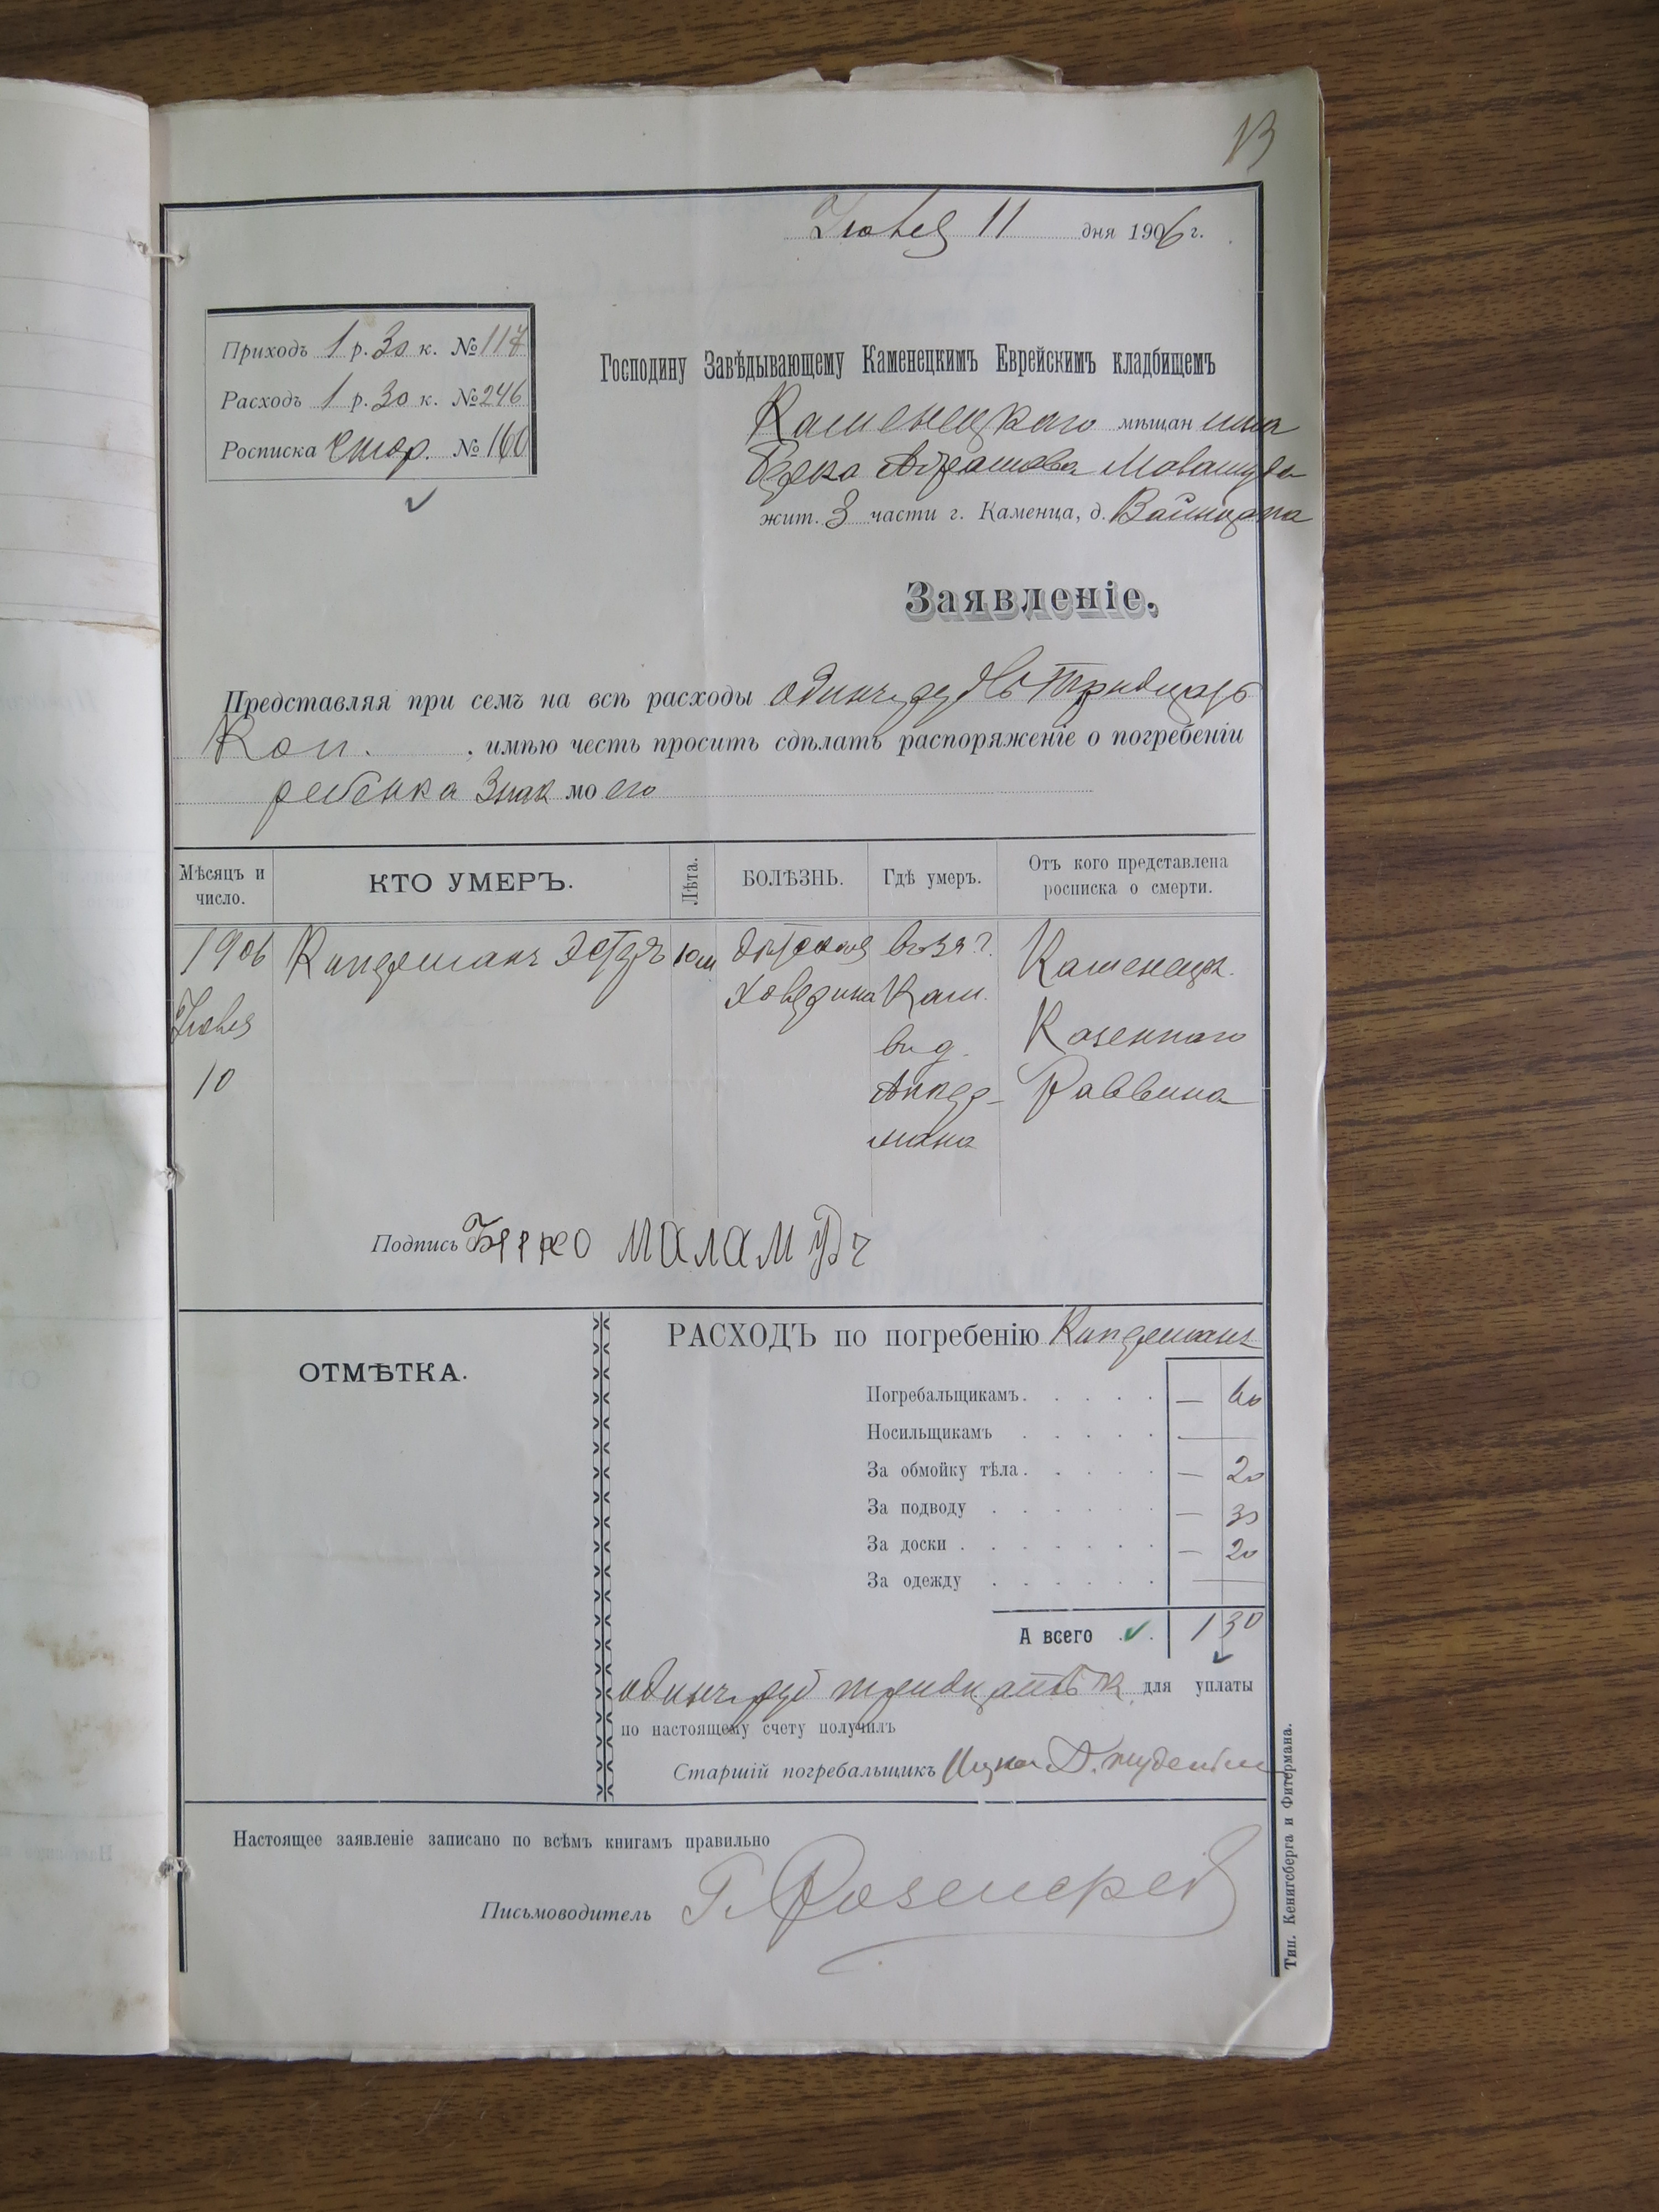 13
Іюля 11 дня 1906 г.
Приходъ 1 р. 30 к. № 117
Расходъ 1 р. 30 к. № 246
Росписка стор. № 160
Господину Завѣдывающему Каменецкимъ Еврейскимъ кладбищемъ
Каменецкаго мѣщанина
Берка Абрамова Маламуда
жит. 3 части г. Каменца, д. Вайнцапа
Заявленіе.
Представляя при семъ на всѣ расходы одинъ рубль тридцать
Коп. , имѣю честь просить сдѣлать распоряженіе о погребеніи
ребенка знакомоего
Мѣсяцъ и число.
КТО УМЕРЪ.
Лѣта.
БОЛѢЗНЬ.
Гдѣ умеръ.
Отъ кого представлена росписка о смерти.
1906 Іюля 10
Киперманъ Эстеръ
10 м
дѣтская холерина
въ 3 ч. Кам. въ д.
Каменецк. Казеннаго Раввина
Подпись Берко маламудъ
ОТМѢТКА.
РАСХОДЪ по погребенію Киперманъ
Погребальщикамъ. — 60
Носильщикамъ —
За обмойку тѣла. — 20
За подводу — 30
За доски — 20
За одежду —
А всего 1 30
одинъ руб тридцать к. для уплаты
по настоящему счету получилъ
Старшій погребальщикъ
Настоящее заявленіе записано по всѣмъ книгамъ правильно
Письмоводитель Г.
Тип. Кенигсберга и Фитермана.